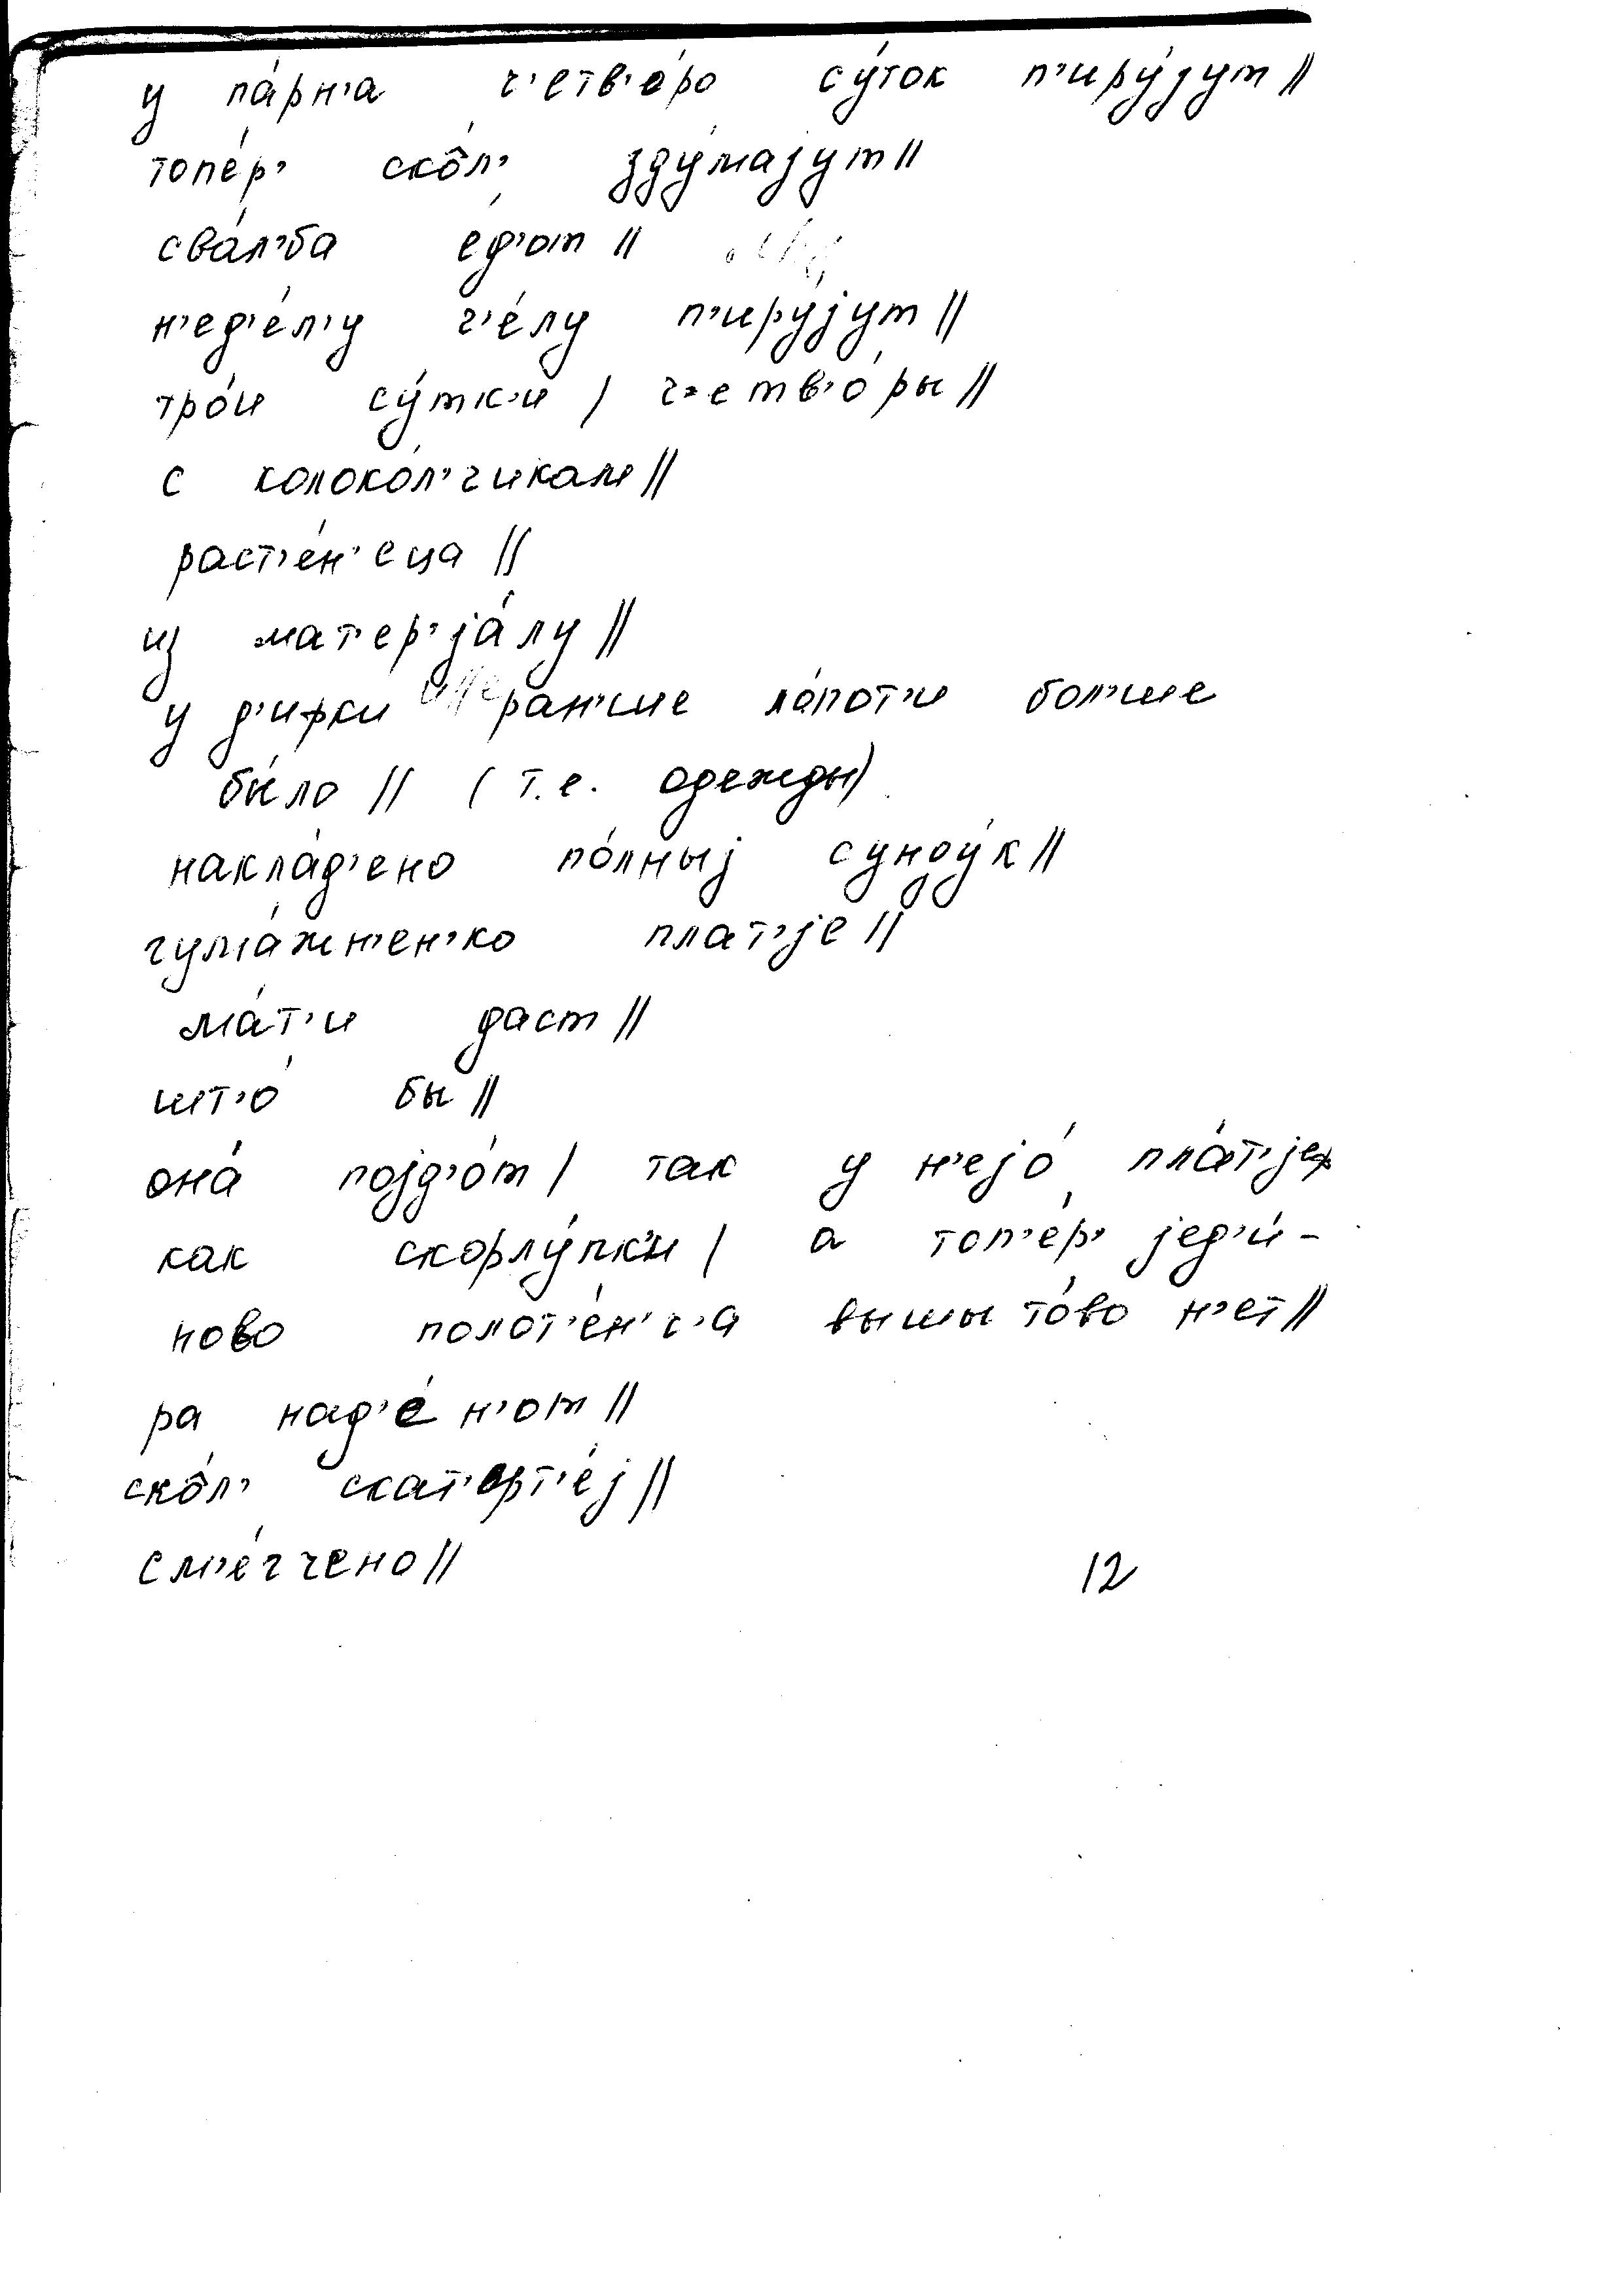 у па́рн'а ч'етв'о́ро су́ток п'иру́јут ||
топе́р' ско̂л' зду́мајут ||
сва́л'ба е́д'от ||
н'ед'е́л'у ч'е́лу п'иру́јут ||
тро́и су́тк'и | ч'етв'о́ры ||
с колоко́л'чикам ||
раст'е́н'еца ||
из мат'ер'јáлу ||
у д'ирки ран'ше ло́пот'и бол'ше
бы́ло || (т.е. одежды)
накла́д'ено по́лныј сундýк ||
гума́жн'ен'ко плат'је ||
ма́т'и даст ||
шт'о́ бы ||
она́ појд'о́т | так у н'ејо́ пла́т'јеф
как скорлу́пк'и | а топ'е́р' јед'и́-
ново полот'е́н'ч'а вышы то́во н'ет ||
ра над'е́н'от ||
ско̂л' скат'ерт'е́ј ||
см'е́гчено ||
12